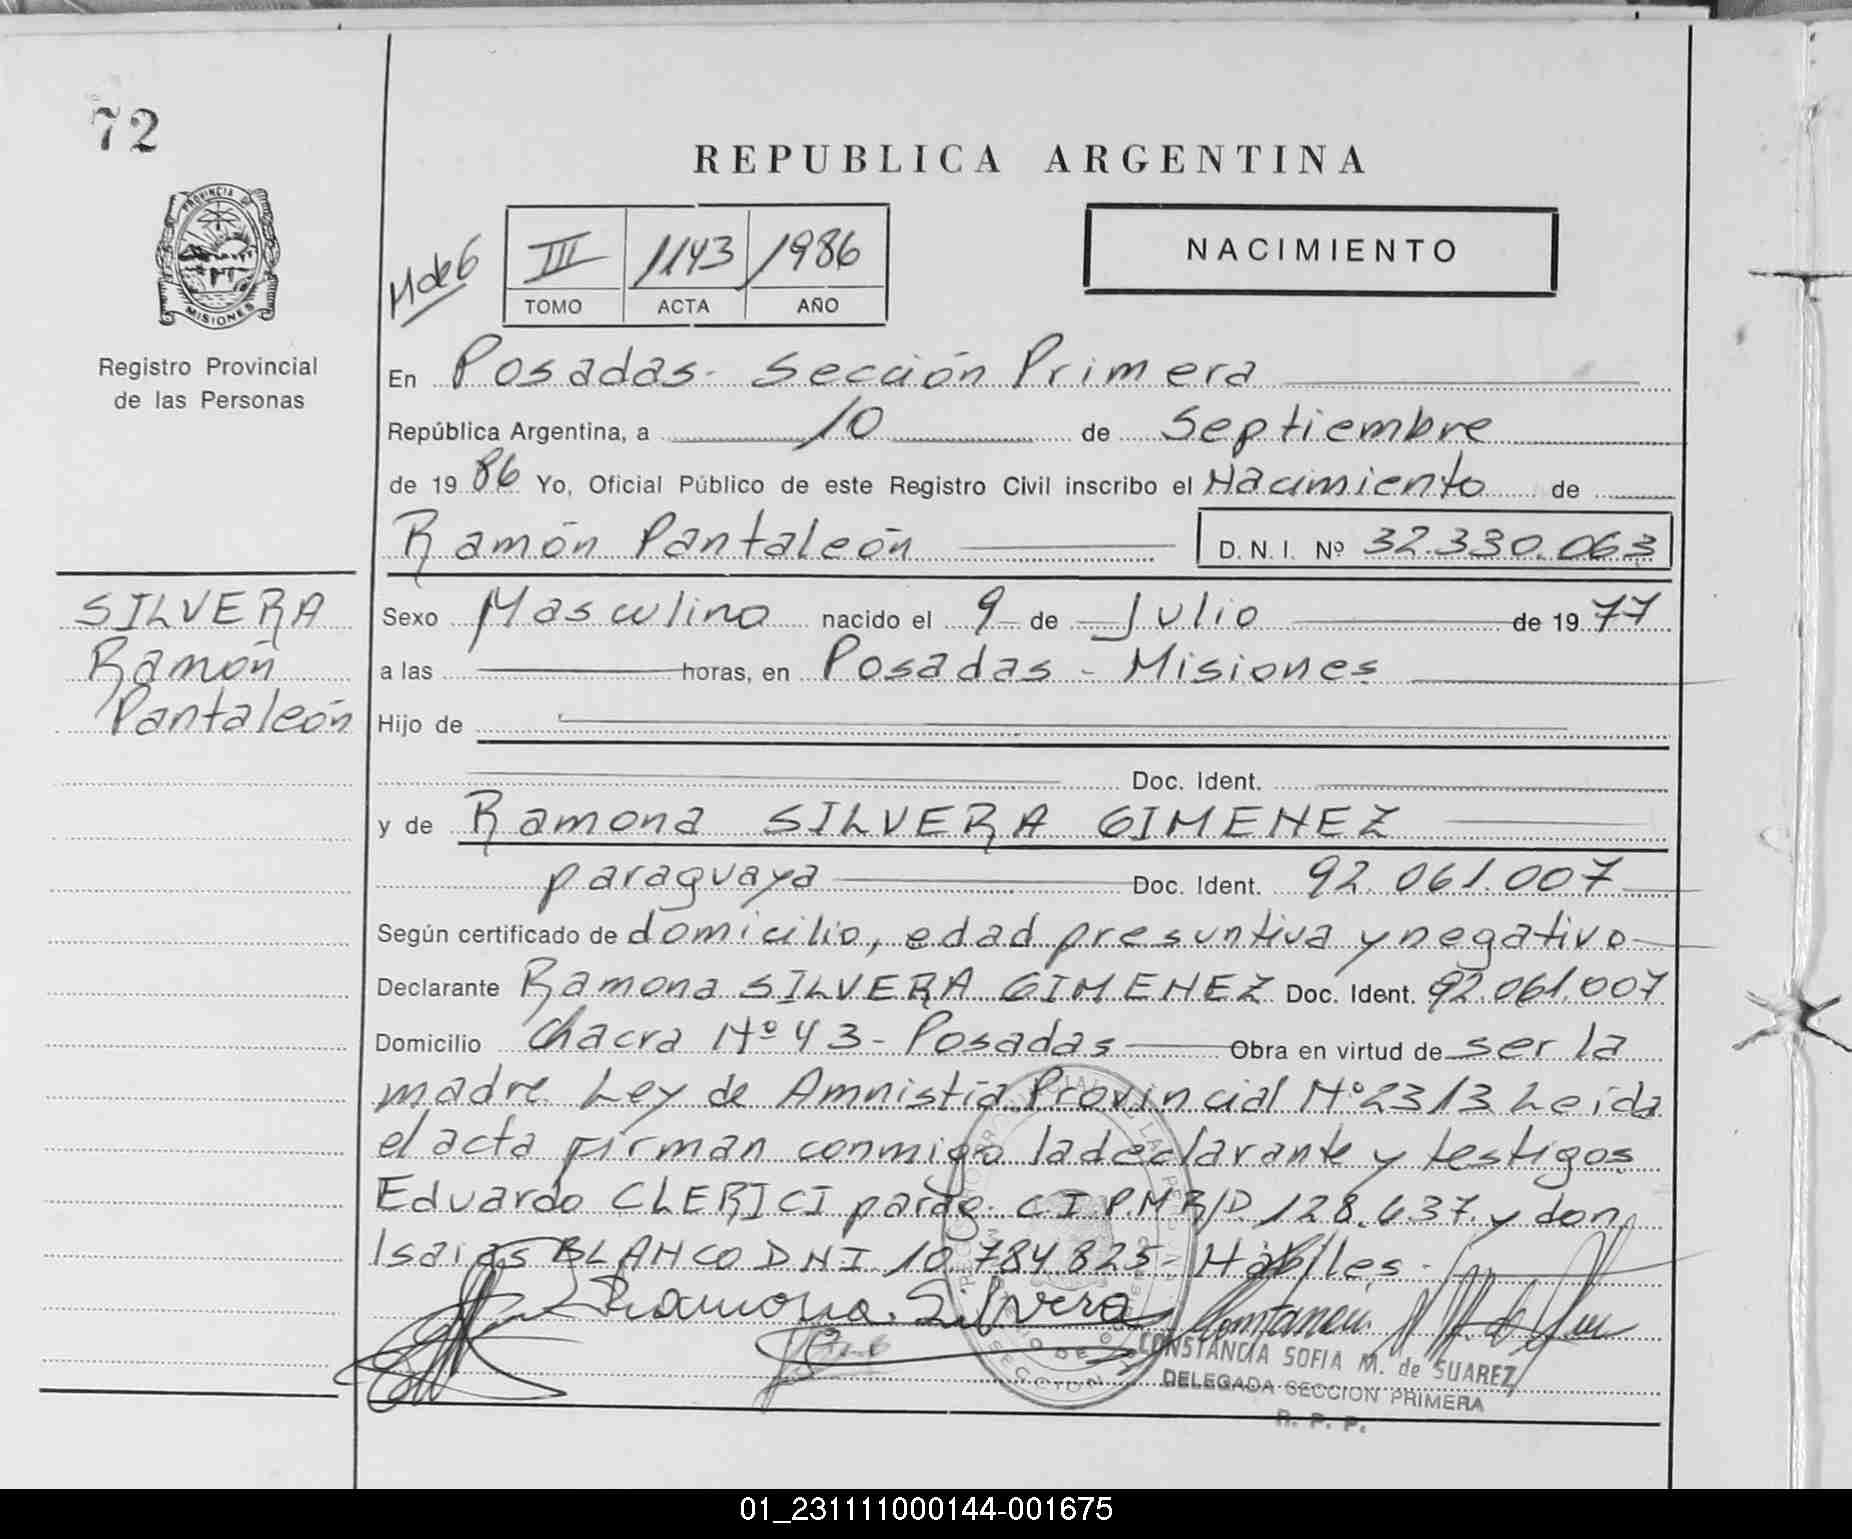 72
REPUBLICA ARGENTINA
PROVINCIA DE
MISIONES
Registro Provincial
de las Personas
III 1143 1986
TOMO ACTA AÑO
NACIMIENTO
En Posadas - Sección Primera
República Argentina, a 10 de Septiembre
de 1986 Yo, Oficial Público de este Registro Civil inscribo el Nacimiento de
Ramón Pantaleón D.N.I. Nº 32.330.063
SILVERA
Ramón
Pantaleón
Sexo Masculino nacido el 9 de Julio de 1977
a las horas, en Posadas - Misiones
Hijo de
Doc. Ident.
y de Ramona SILVERA GIMENEZ
paraguaya Doc. Ident. 92.061.007
Según certificado de domicilio, edad presuntiva y negativo
Declarante Ramona SILVERA GIMENEZ Doc. Ident. 92.061.007
Domicilio Chacra Nº 43 - Posadas Obra en virtud de ser la
madre. Ley de Amnistía Provincial Nº 2313. Leida
el acta firman conmigo la declarante y testigos
Eduardo CLERICI parag. C.I. P.M R/D 128.637 y don
Isaias BLANCO DNI 10.784.825 - Hábiles.-
Ramona Silvera
CONSTANCIA SOFIA M. de SUAREZ
DELEGADA SECCION PRIMERA
R. P. P.
01_231111000144-001675